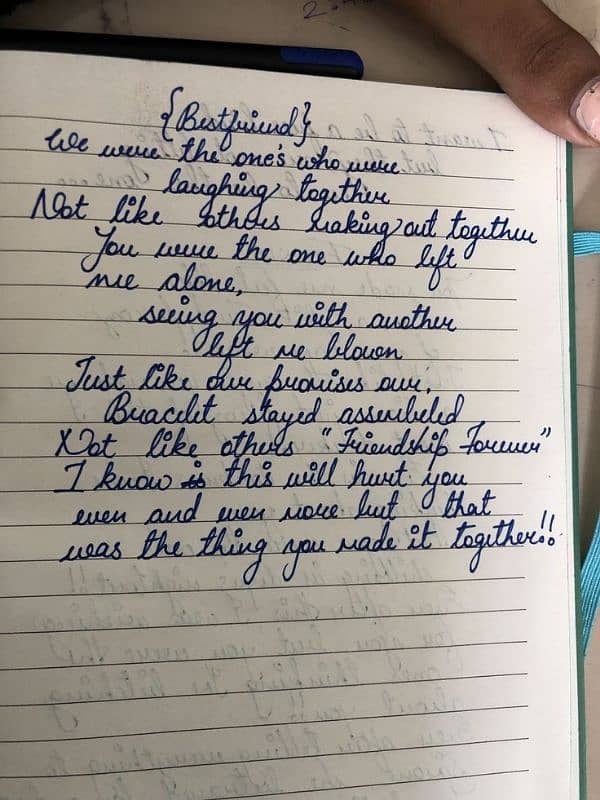 {Bestfriend}
We were the one's who were
laughing together
Not like others making out together
You were the one who left
me alone,
seeing you with another
left me blown
Just like our promises our,
Bracelet stayed assembeled
Not like others "Friendship Forever"
I know is this will hurt you
even and even more but that
was the thing you made it together!!